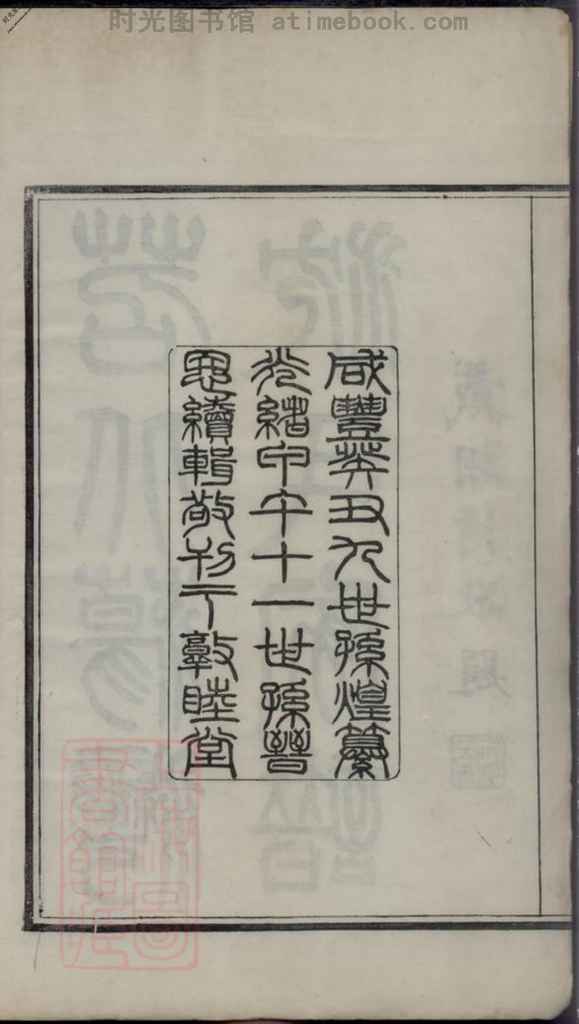 时光图书馆 atimebook.com
咸豐癸丑九世孫煌纂
光緒甲午十一世孫晉
恩續輯敬刊于敦睦堂